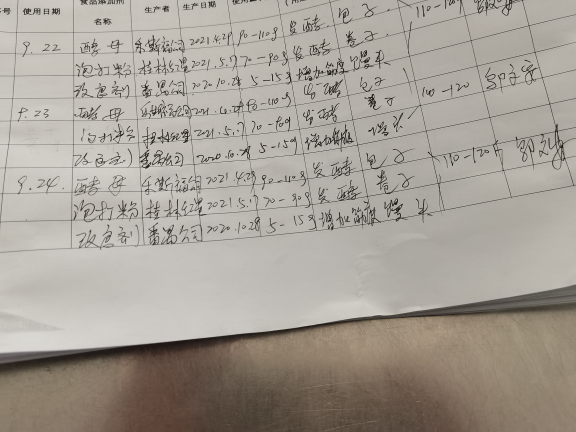 序号 使用日期 食品添加剂名称 生产者 生产日期
9.22 酵母 乐斯福公司 2021.4.29 90-110g 发酵 包子
泡打粉 桂林红星 2021.5.17 70-90g 发酵 卷子
改良剂 番禺公司 2020.10.28 5-15g 增加筋度 馒头
9.23 酵母 2021.4.29 90-110g 发酵 包子 110-120
泡打粉 桂林红星 2021.5.17 70-90g 发酵 卷子
改良剂 番禺公司 2020.10.28 5-15g 增加筋度 馒头
9.24. 酵母 乐斯福公司 2021.4.29 90-110g 发酵 包子 110-120斤
泡打粉 桂林红星 2021.5.17 70-90g 发酵 卷子
改良剂 番禺公司 2020.10.28 5-15g 增加筋度 馒头